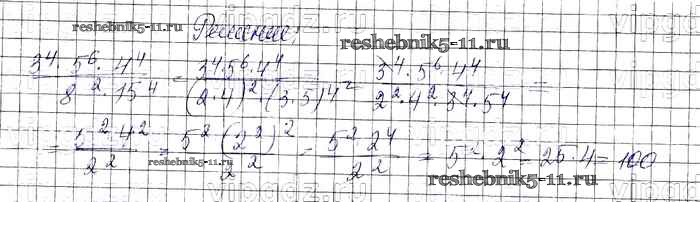 reshebnik5-11.ru
Решение:
reshebnik5-11.ru
3⁴·5⁶·4⁴ / 8²·15⁴ = 3⁴·5⁶·4⁴ / (2·4)²·(3·5)⁴ = 3⁴·5⁶·4⁴ / 2²·4²·3⁴·5⁴ =
= 5²·4² / 2² = 5²(2²)² / 2² = 5²·2⁴ / 2² = 5²·2² = 25·4 = 100
reshebnik5-11.ru
reshebnik5-11.ru
vipgdz.ru